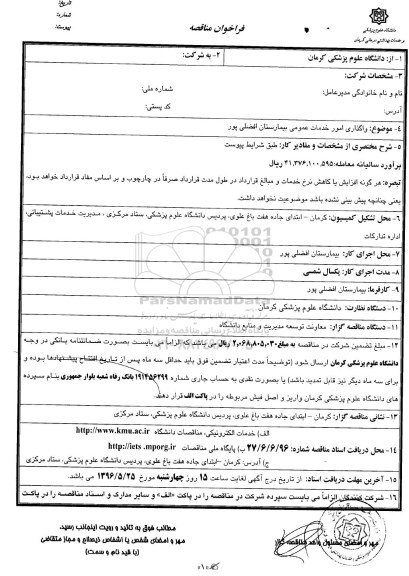 تاریخ:
شماره:
پیوست:
فراخوان مناقصه
دانشگاه علوم پزشکی
و خدمات بهداشتی درمانی کرمان
۱- از: دانشگاه علوم پزشکی کرمان
۲- به شرکت:
۳- مشخصات شرکت:
نام و نام خانوادگی مدیرعامل:
شماره ملی:
آدرس:
کد پستی:
۴- موضوع: واگذاری امور خدمات عمومی بیمارستان افضلی پور
۵- شرح مختصری از مشخصات و مقادیر کار: طبق شرایط پیوست
برآورد سالیانه معامله: ۴۱,۳۷۶,۱۰۰,۵۹۵ ریال
تبصره: هر گونه افزایش یا کاهش نرخ خدمات و مبالغ قرارداد در طول مدت قرارداد صرفاً در چارچوب و بر اساس مفاد قرارداد خواهد بود.
یعنی چنانچه پیش بینی نشده باشد موضوعیت نخواهد داشت.
۶- محل تشکیل کمیسیون: کرمان – ابتدای جاده هفت باغ علوی، پردیس دانشگاه علوم پزشکی، ستاد مرکزی ، مدیریت خدمات پشتیبانی،
اداره تدارکات
۷- محل اجرای کار: بیمارستان افضلی پور
۸- مدت اجرای کار: یکسال شمسی
۹- کارفرما: بیمارستان افضلی پور
۱۰- دستگاه نظارت: دانشگاه علوم پزشکی کرمان
۱۱- دستگاه مناقصه گزار: معاونت توسعه مدیریت و منابع دانشگاه
۱۲- مبلغ تضمین شرکت در مناقصه به مبلغ ۲,۰۶۸,۸۰۵,۰۳۰ ریال می باشد که الزاماً می بایست بصورت ضمانتنامه بانکی در وجه
دانشگاه علوم پزشکی کرمان ارسال شود (توضیحاً مدت اعتبار تضمین فوق باید حداقل سه ماه پس از تاریخ افتتاح پیشنهادها بوده و
برای سه ماه دیگر نیز قابل تمدید باشد) یا بصورت نقدی به حساب جاری شماره ۱۹۱۴۵۶۲۹۹ بانک رفاه شعبه بلوار جمهوری بنام سپرده
های دانشگاه علوم پزشکی کرمان واریز و اصل فیش مربوطه را در پاکت الف قرار دهند.
۱۳- نشانی مناقصه گزار: کرمان – ابتدای جاده هفت باغ علوی، پردیس دانشگاه علوم پزشکی، ستاد مرکزی
الف) خدمات الکترونیکی، مناقصات دانشگاه http://www.kmu.ac.ir
۱۴- محل دریافت اسناد مناقصه شماره: ۲۷/۶/۶/۹۶ ب) پایگاه ملی مناقصات http://iets.mporg.ir
ج) آدرس: کرمان –ابتدای جاده هفت باغ علوی، پردیس دانشگاه علوم پزشکی، ستاد مرکزی
۱۵- آخرین مهلت دریافت اسناد: از تاریخ درج آگهی لغایت ساعت ۱۵ روز چهارشنبه مورخ ۱۳۹۶/۵/۲۵ می باشد.
۱۶- شرکت کنندگان الزاماً می بایست سپرده شرکت در مناقصه را در پاکت «الف» و سایر مدارک و اسناد مناقصه را در پاکت
مطالب فوق به تائید و رویت اینجانب رسید.
مهر و امضای شخص یا اشخاص ذیصلاح و مجاز متقاضی
(با قید نام و سمت)
مهر و امضای مسئول واحد مناقصه گزار
ParsNamadData